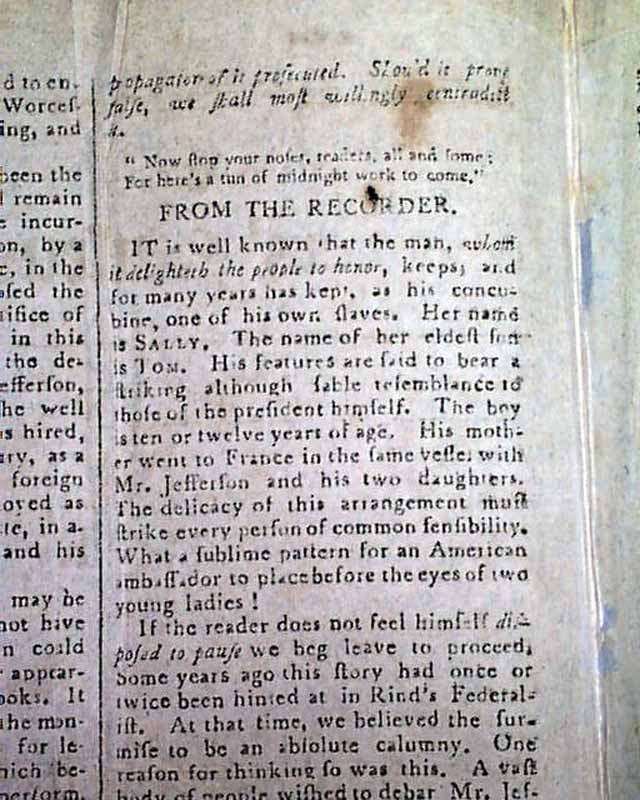 d to en-
Worcef-
ing, and
been the
remain
e incur-
on, by a
c, in the
ofed the
ifice of
in this
the de-
efferfon,
he well
s hired,
ary, as a
foreign
loyed as
te, in a-
and his
may be
not hive
n could
appear-
ooks. It
the mon-
for le-
hich be-
perform.
propagator of it profecuted. Shou'd it prove
falfe, we fhall moft willingly contradict
it.
" Now ftop your nofes, readers, all and fome;
For here's a tun of midnight work to come."
FROM THE RECORDER.
IT is well known that the man, whom
it delighteth the people to honor, keeps; and
for many years has kept, as his concu-
bine, one of his own flaves. Her name
is SALLY. The name of her eldeft fon
is TOM. His features are faid to bear a
ftriking although fable refemblance to
thofe of the prefident himfelf. The boy
is ten or twelve years of age. His moth-
er went to France in the fame veffel with
Mr. Jefferfon and his two daughters.
The delicacy of this arrangement muft
ftrike every perfon of common fenfibility.
What a fublime pattern for an American
ambaffador to place before the eyes of two
young ladies !
If the reader does not feel himfelf dif-
pofed to paufe we beg leave to proceed,
Some years ago this ftory had once or
twice been hinted at in Rind's Federal-
ift. At that time, we believed the fur-
mife to be an abfolute calumny. One
reafon for thinking fo was this. A vaft
body of people wifhed to debar Mr. Jef-